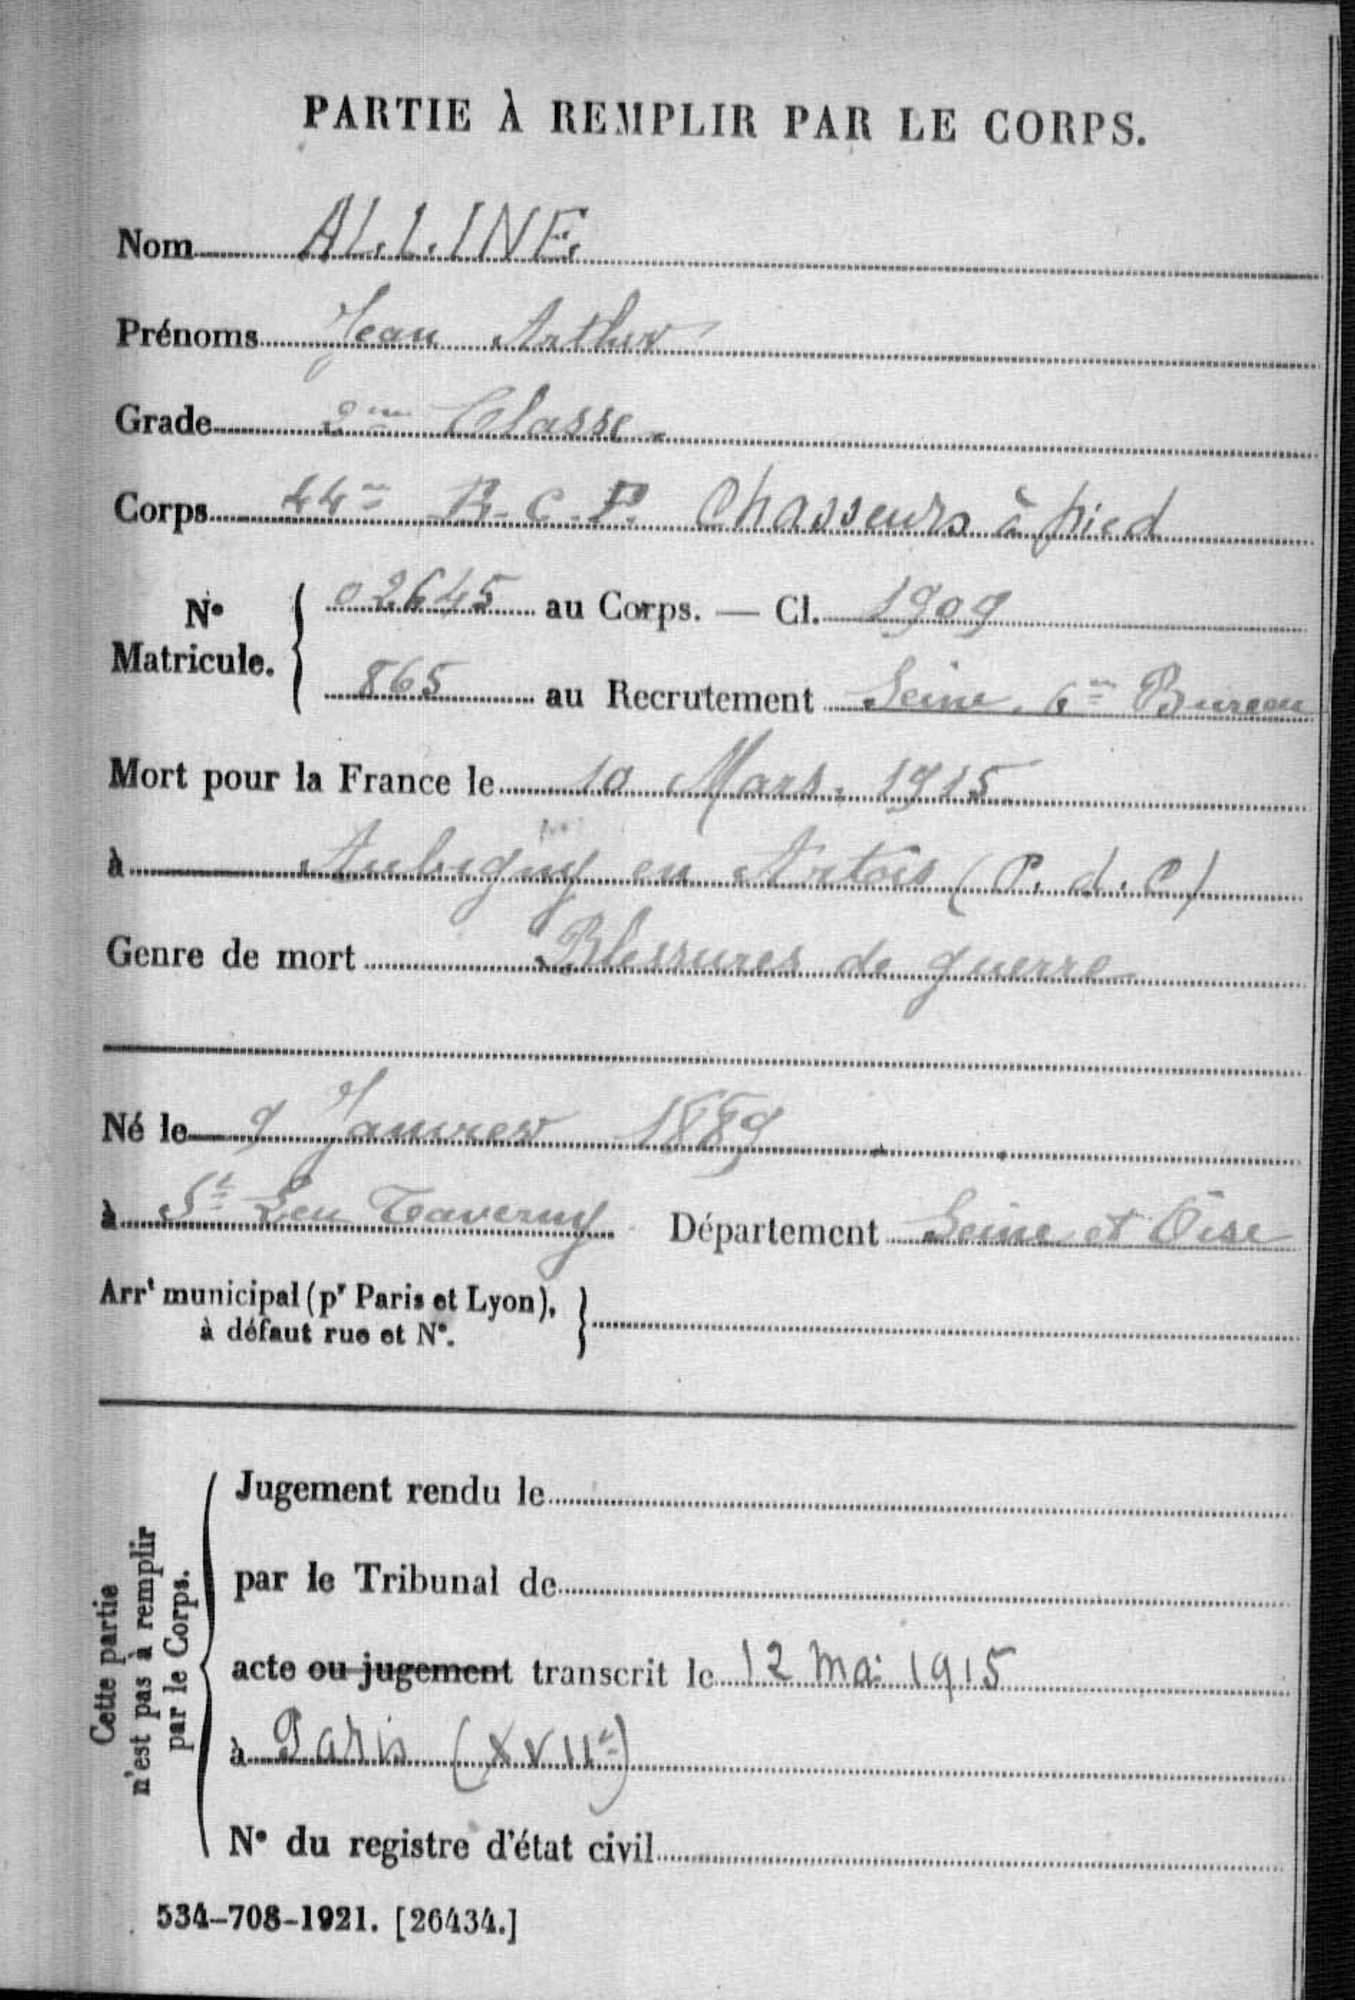 PARTIE À REMPLIR PAR LE CORPS.
Nom ALLINE
Prénoms Jean Arthur
Grade 2me Classe
Corps 44me B.C.P. Chasseurs à pied
No Matricule. { 02645 au Corps. — Cl. 1909
865 au Recrutement Seine 6me Bureau
Mort pour la France le 10 Mars 1915
à Aubigny en Artois (P. d. C)
Genre de mort Blessures de guerre
Né le 9 Janvier 1889
à St Leu Taverny Département Seine et Oise
Arrt municipal (pr Paris et Lyon), à défaut rue et No. }
Cette partie n'est pas à remplir par le Corps.
Jugement rendu le
par le Tribunal de
acte ou jugement transcrit le 12 mai 1915
à Paris (XVIIe)
No du registre d'état civil
534-708-1921. [26434.]